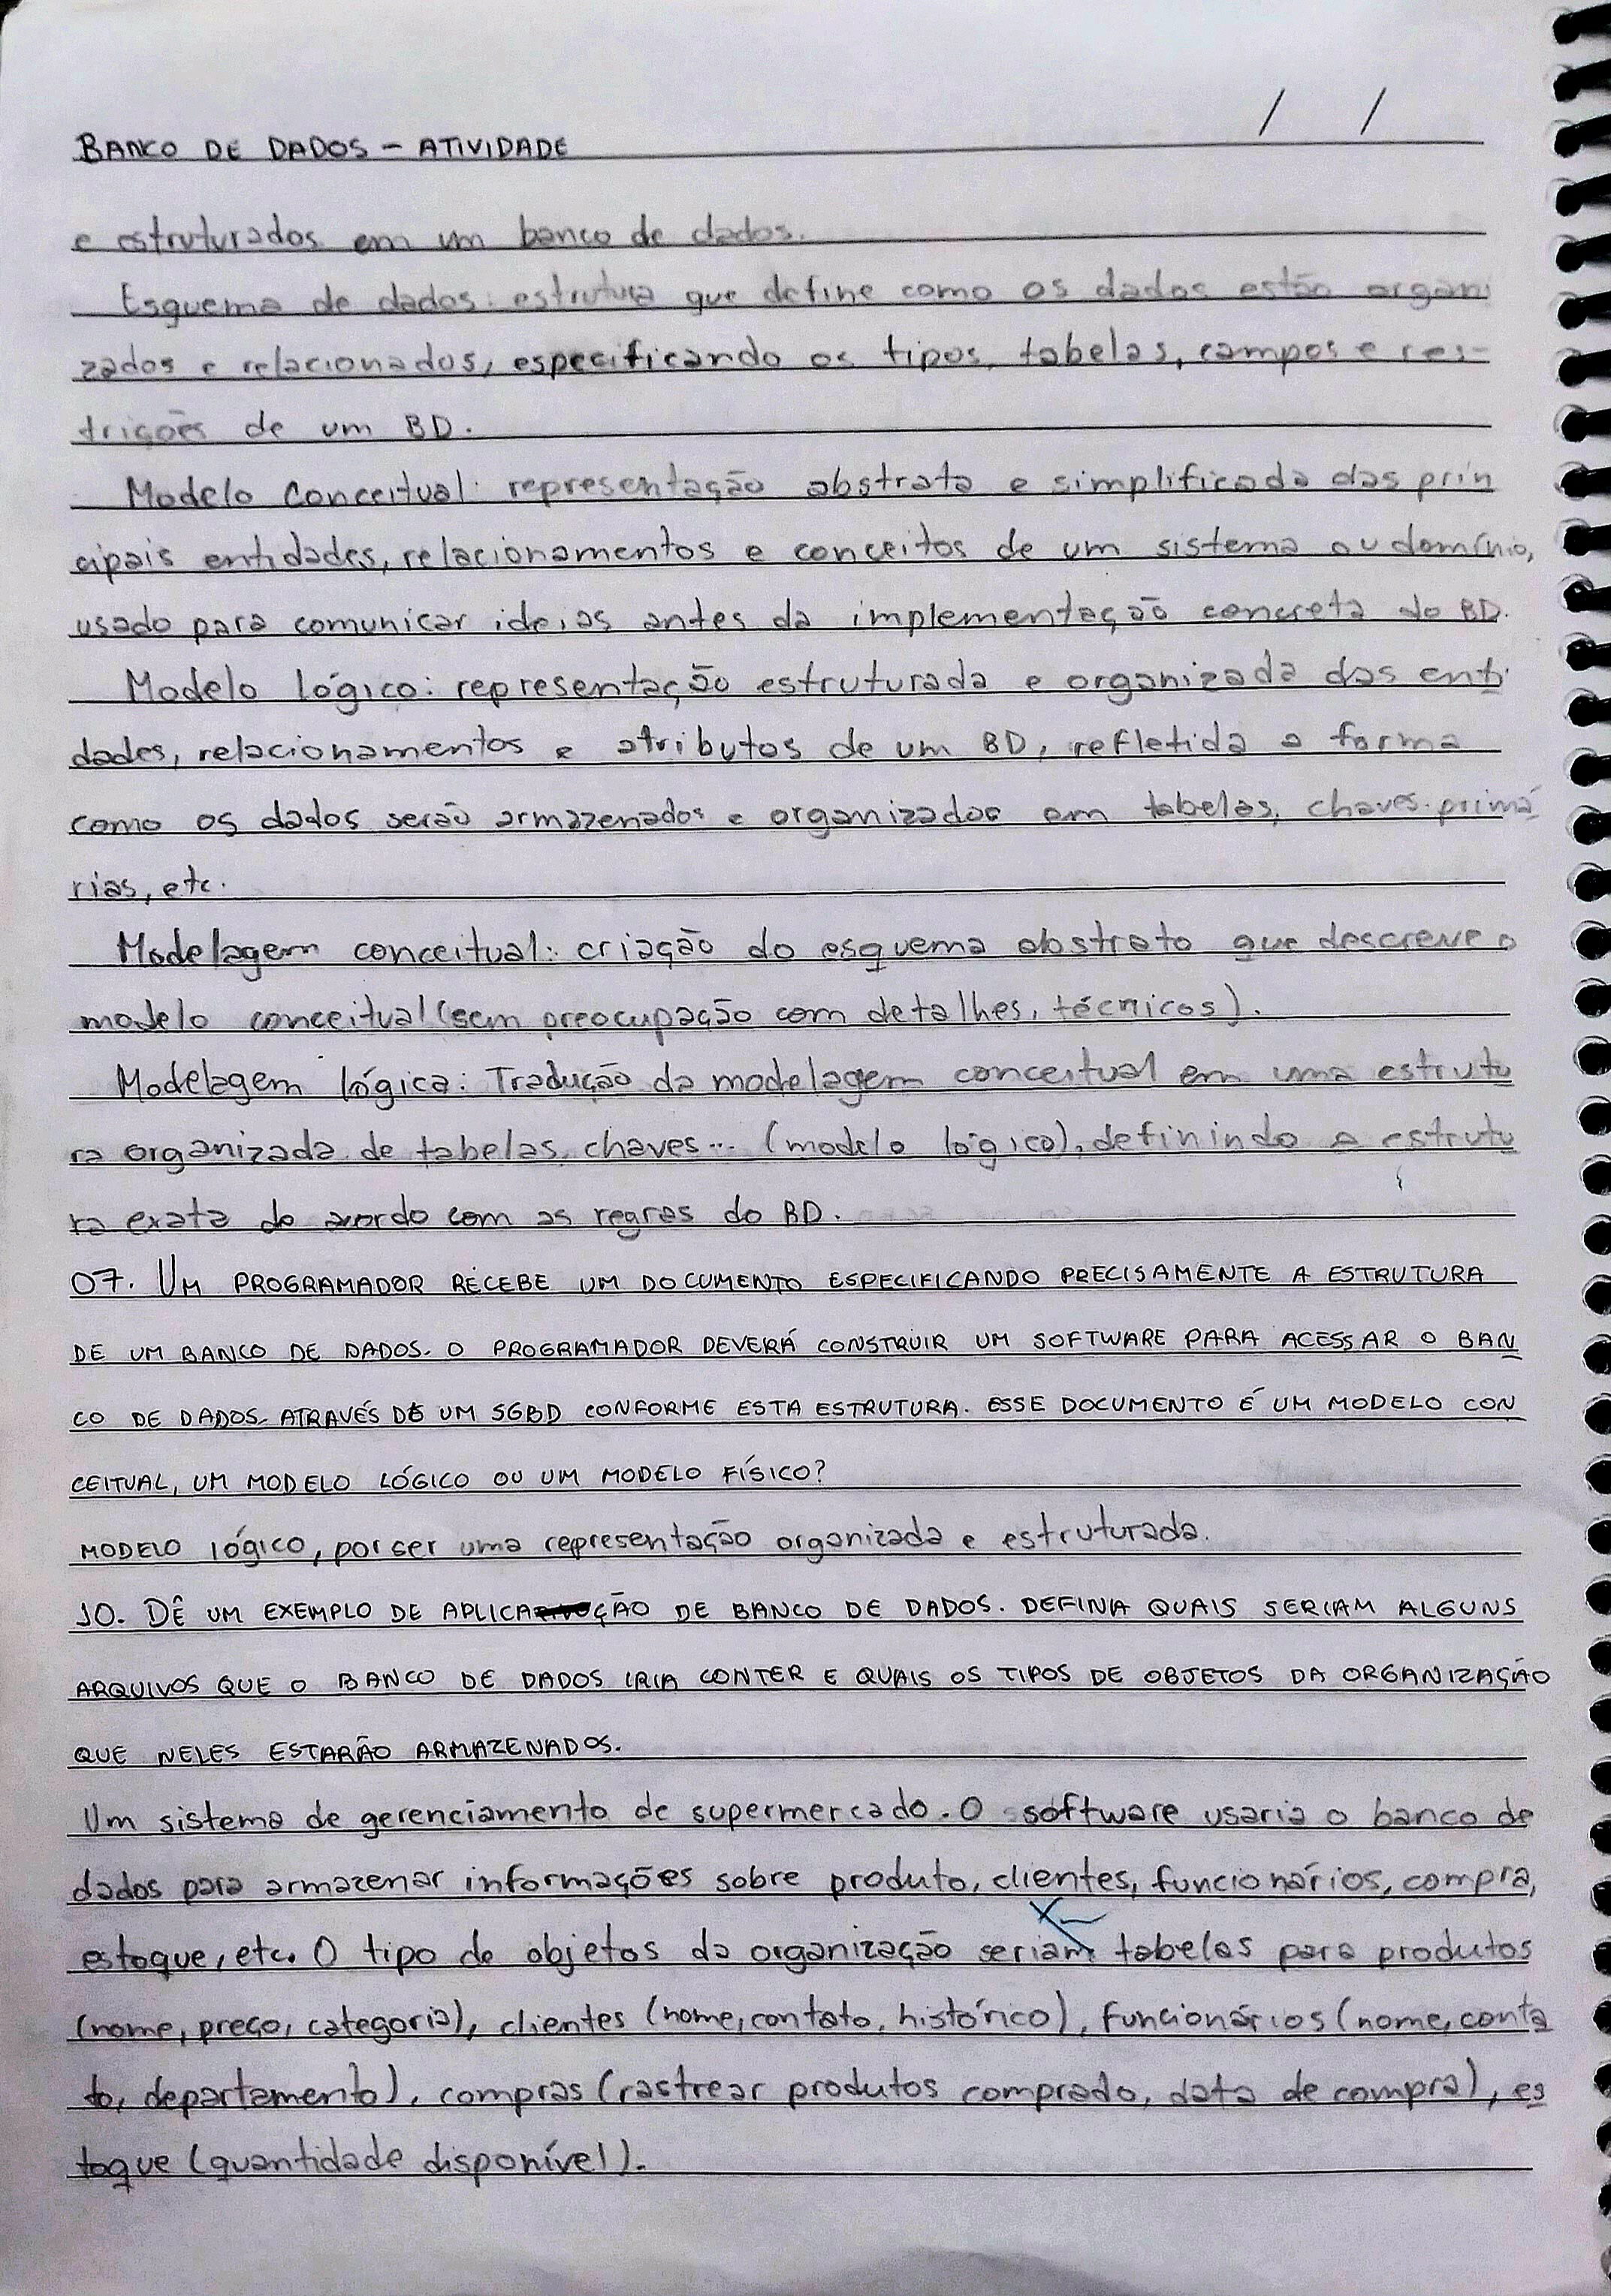 / /
BANCO DE DADOS - ATIVIDADE
e estruturados em um banco de dados.
Esquema de dados: estrutura que define como os dados estão organi
zados e relacionados, especificando os tipos, tabelas, campos e res-
trições de um BD.
Modelo Conceitual: representação abstrata e simplificada das prin
cipais entidades, relacionamentos e conceitos de um sistema ou domínio,
usado para comunicar ideias antes da implementação concreta do BD.
Modelo lógico: representação estruturada e organizada das enti
dades, relacionamentos e atributos de um BD, refletida a forma
como os dados serão armazenados e organizados em tabelas, chaves primá
rias, etc.
Modelagem conceitual: criação do esquema abstrato que descreve o
modelo conceitual (sem preocupação com detalhes, técnicos).
Modelagem lógica: Tradução da modelagem conceitual em uma estrutu
ra organizada de tabelas, chaves... (modelo lógico), definindo a estrutu
ra exata de acordo com as regras do BD.
07. UM PROGRAMADOR RECEBE UM DOCUMENTO ESPECIFICANDO PRECISAMENTE A ESTRUTURA
DE UM BANCO DE DADOS. O PROGRAMADOR DEVERÁ CONSTRUIR UM SOFTWARE PARA ACESSAR O BAN
CO DE DADOS ATRAVÉS DE UM SGBD CONFORME ESTA ESTRUTURA. ESSE DOCUMENTO É UM MODELO CON
CEITUAL, UM MODELO LÓGICO OU UM MODELO FÍSICO?
MODELO lógico, por ser uma representação organizada e estruturada.
10. DÊ UM EXEMPLO DE APLICAÇÃO DE BANCO DE DADOS. DEFINA QUAIS SERIAM ALGUNS
ARQUIVOS QUE O BANCO DE DADOS IRIA CONTER E QUAIS OS TIPOS DE OBJETOS DA ORGANIZAÇÃO
QUE NELES ESTARÃO ARMAZENADOS.
Um sistema de gerenciamento de supermercado. O software usaria o banco de
dados para armazenar informações sobre produto, clientes, funcionários, compra,
estoque, etc. O tipo de objetos da organização seriam tabelas para produtos
(nome, preço, categoria), clientes (nome, contato, histórico), funcionários (nome, conta
to, departamento), compras (rastrear produtos comprado, data de compra), es
toque (quantidade disponível).